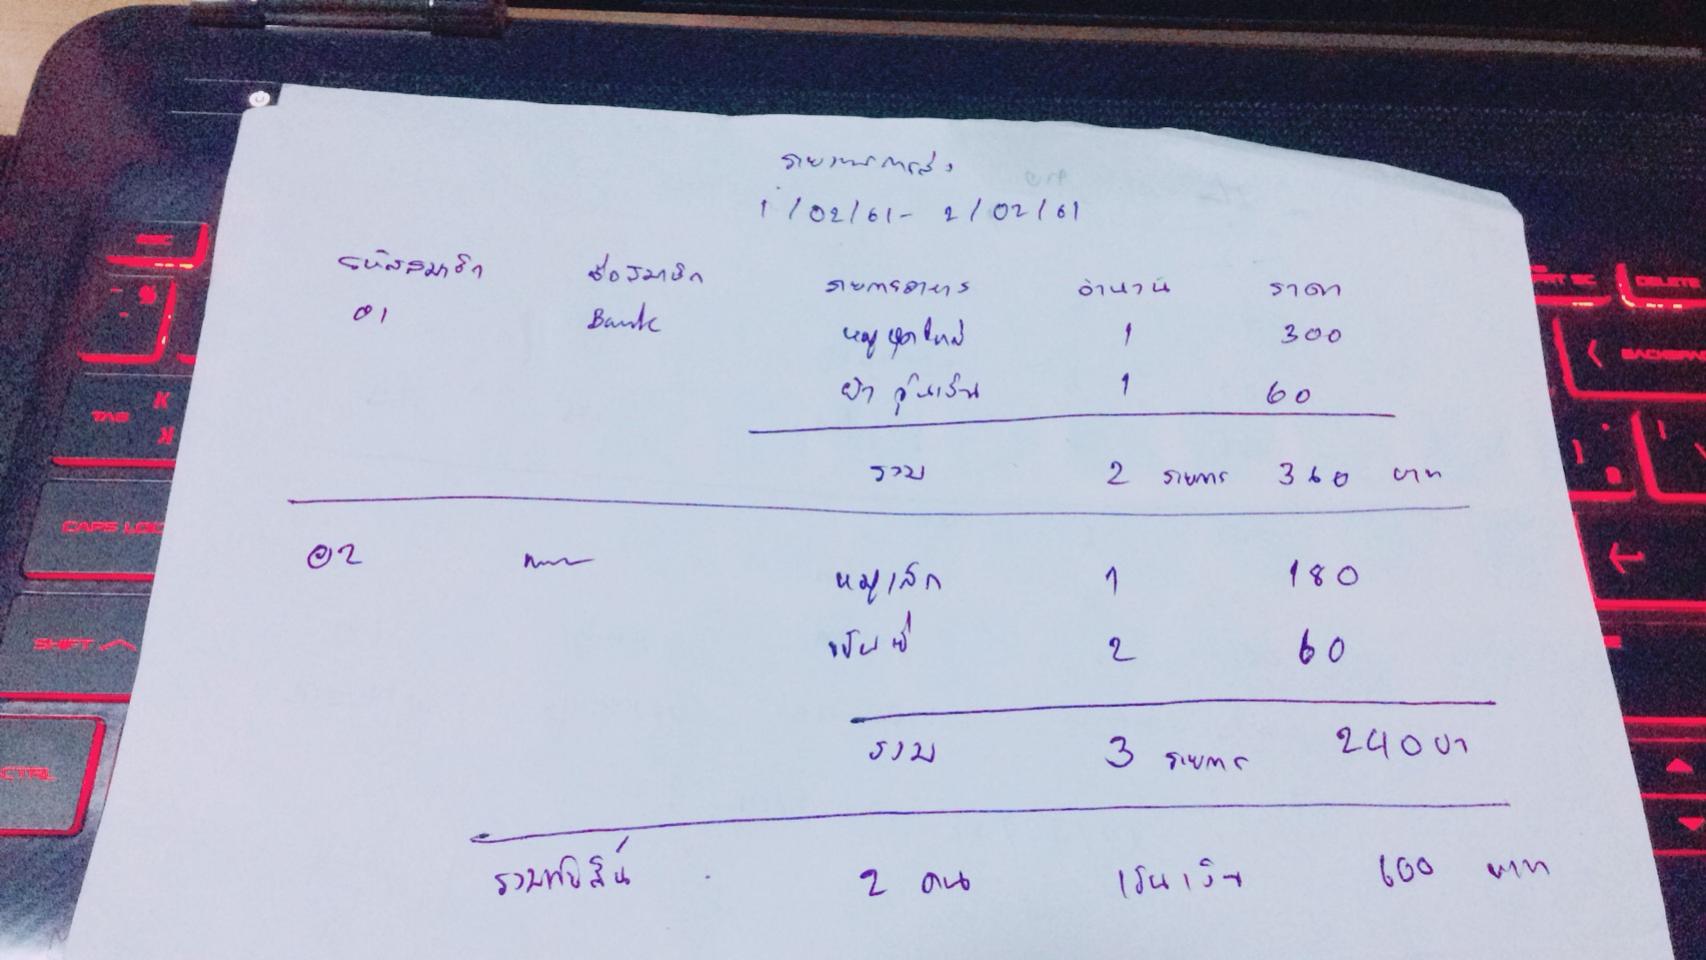 รายการการสั่ง
1/02/61 - 2/02/61
รหัสสมาชิก ชื่อสมาชิก รายการอาหาร จำนวน ราคา
01 Bank หมูชุดใหญ่ 1 300
1 60
รวม 2 รายการ 360 บาท
02 หมูเล็ก 1 180
เป๊บซี่ 2 60
รวม 3 รายการ 240 บา
รวมทั้งสิ้น 2 คน เป็นเงิน 600 บาท
ESC
TAB
CAPS LOC
SHIFT
CTRL
DELETE
BACKSPA